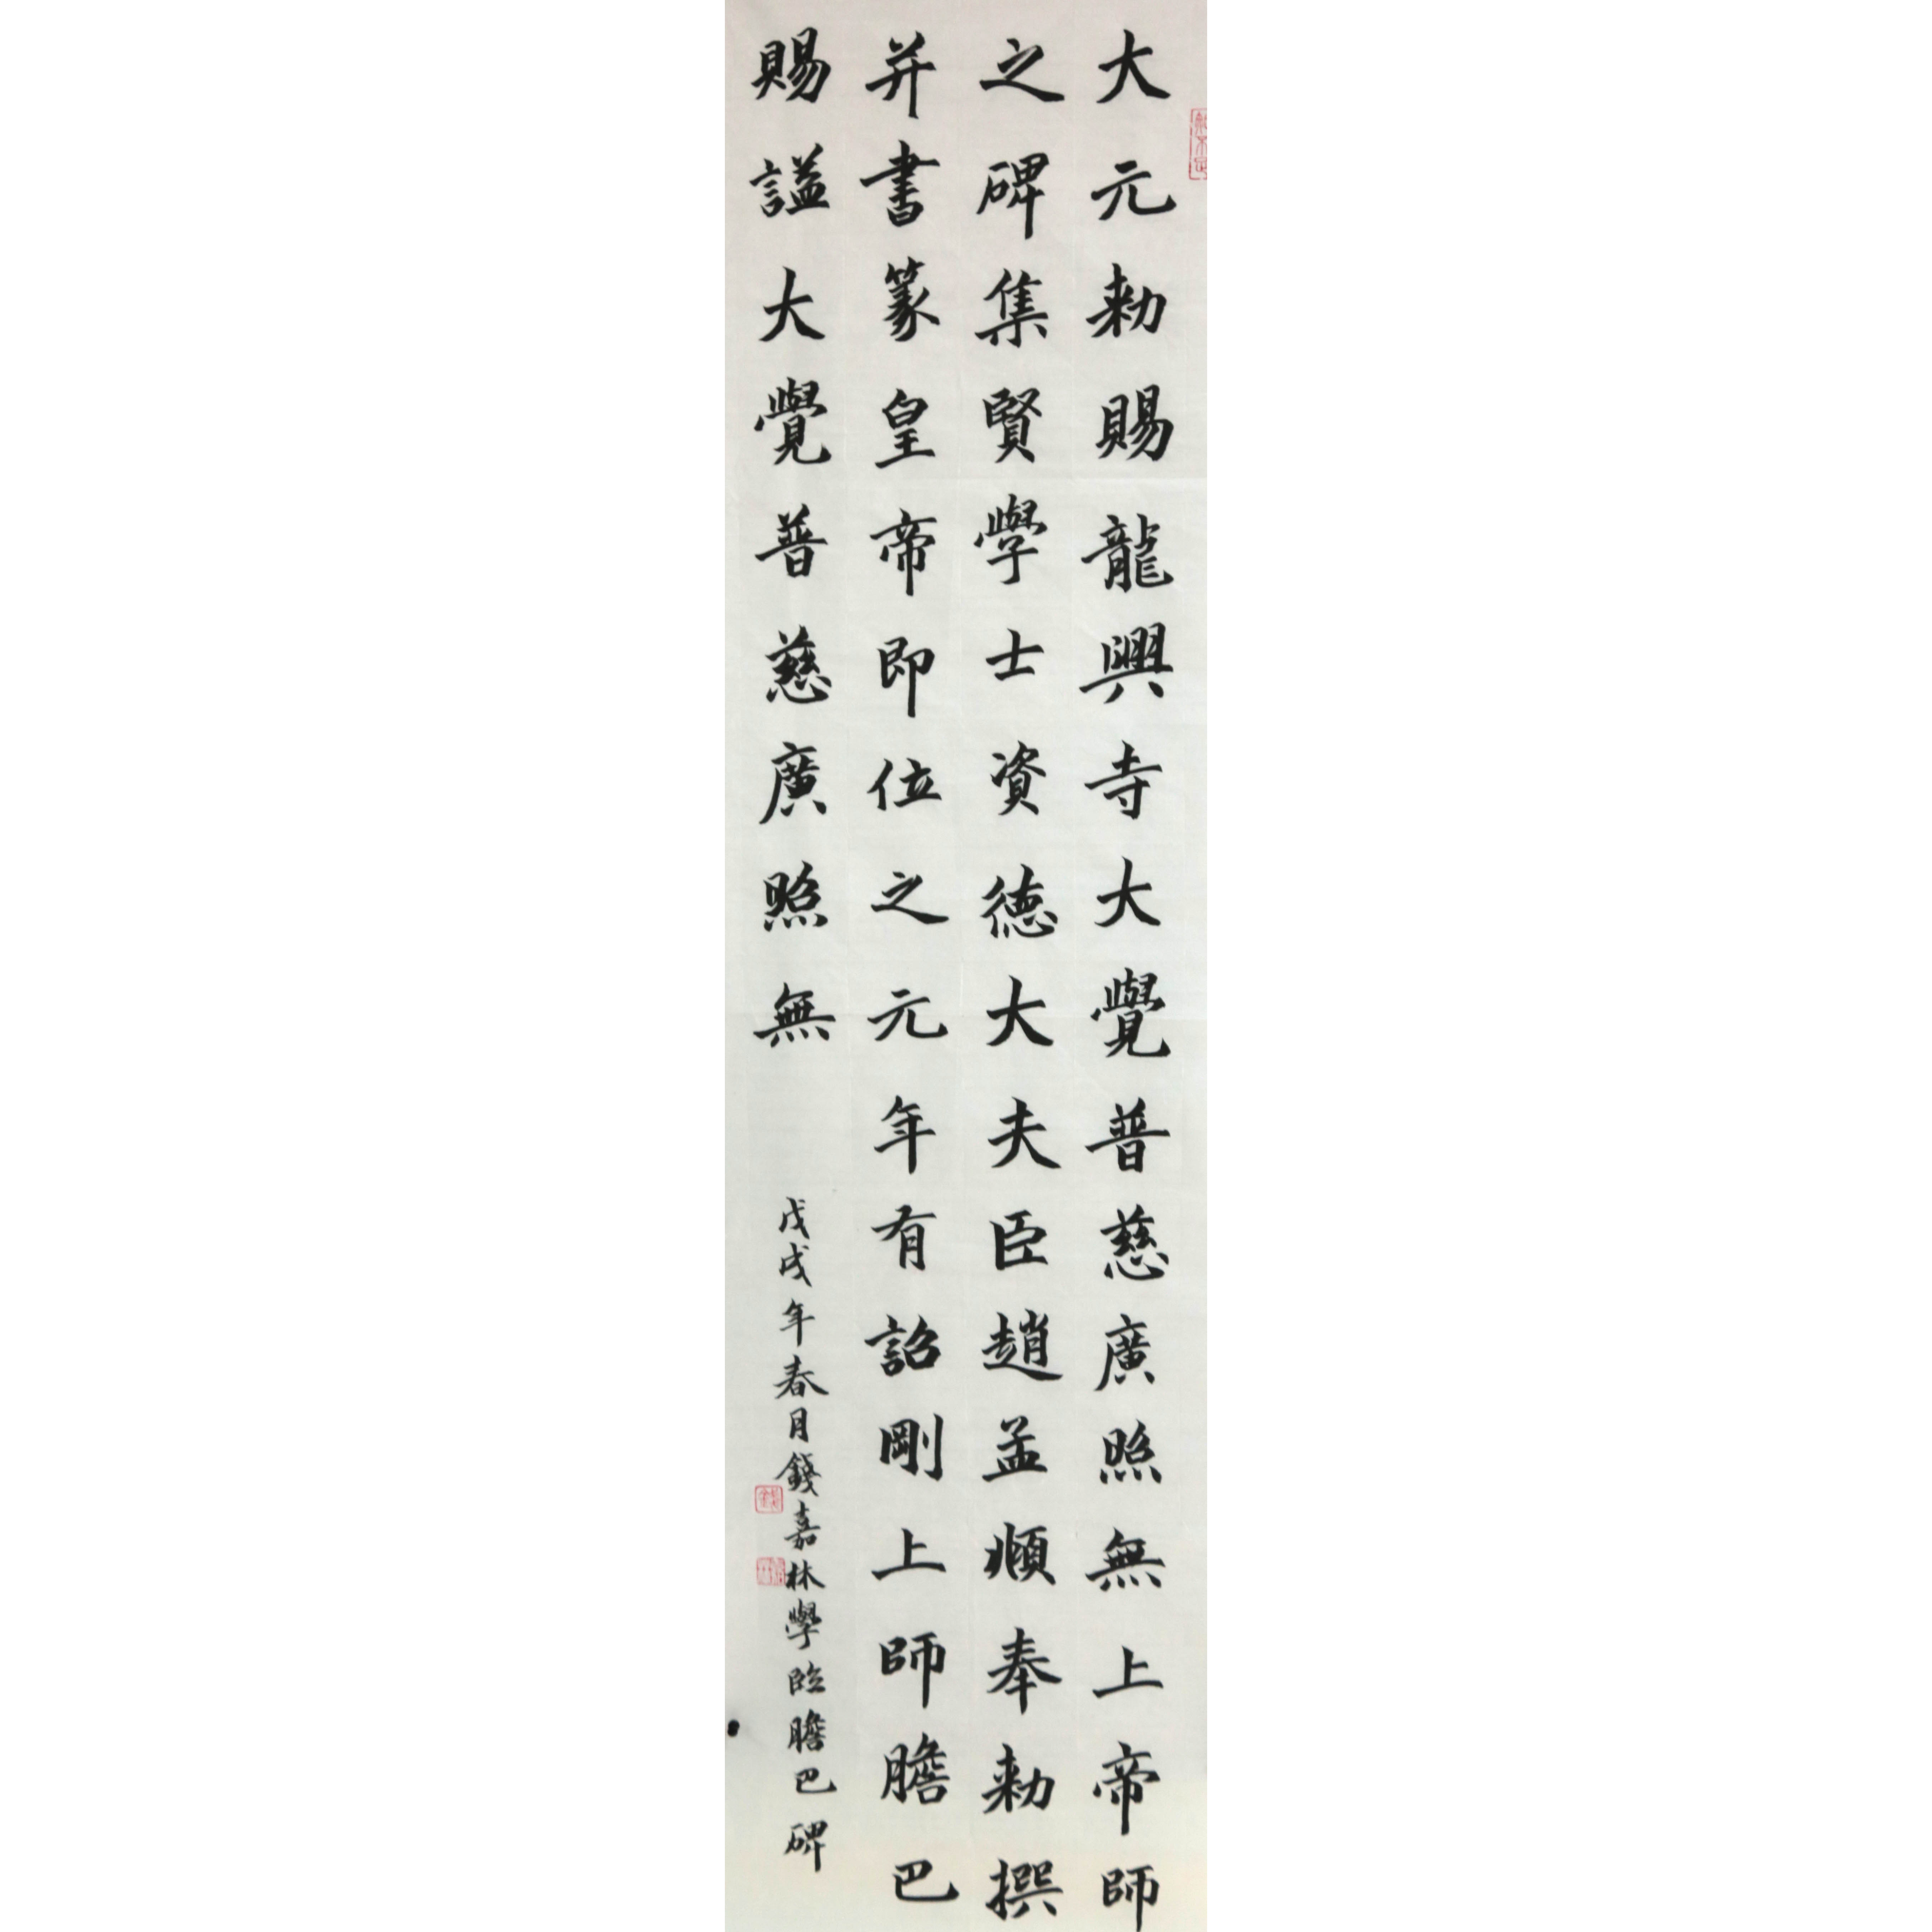 大元勑賜龍興寺大覺普慈廣照無上帝師
之碑集賢學士資德大夫臣趙孟頫奉勑撰
并書篆皇帝即位之元年有詔剛上師膽巴
賜謚大覺普慈廣照無
戊戌年春月錢嘉林學臨膽巴碑